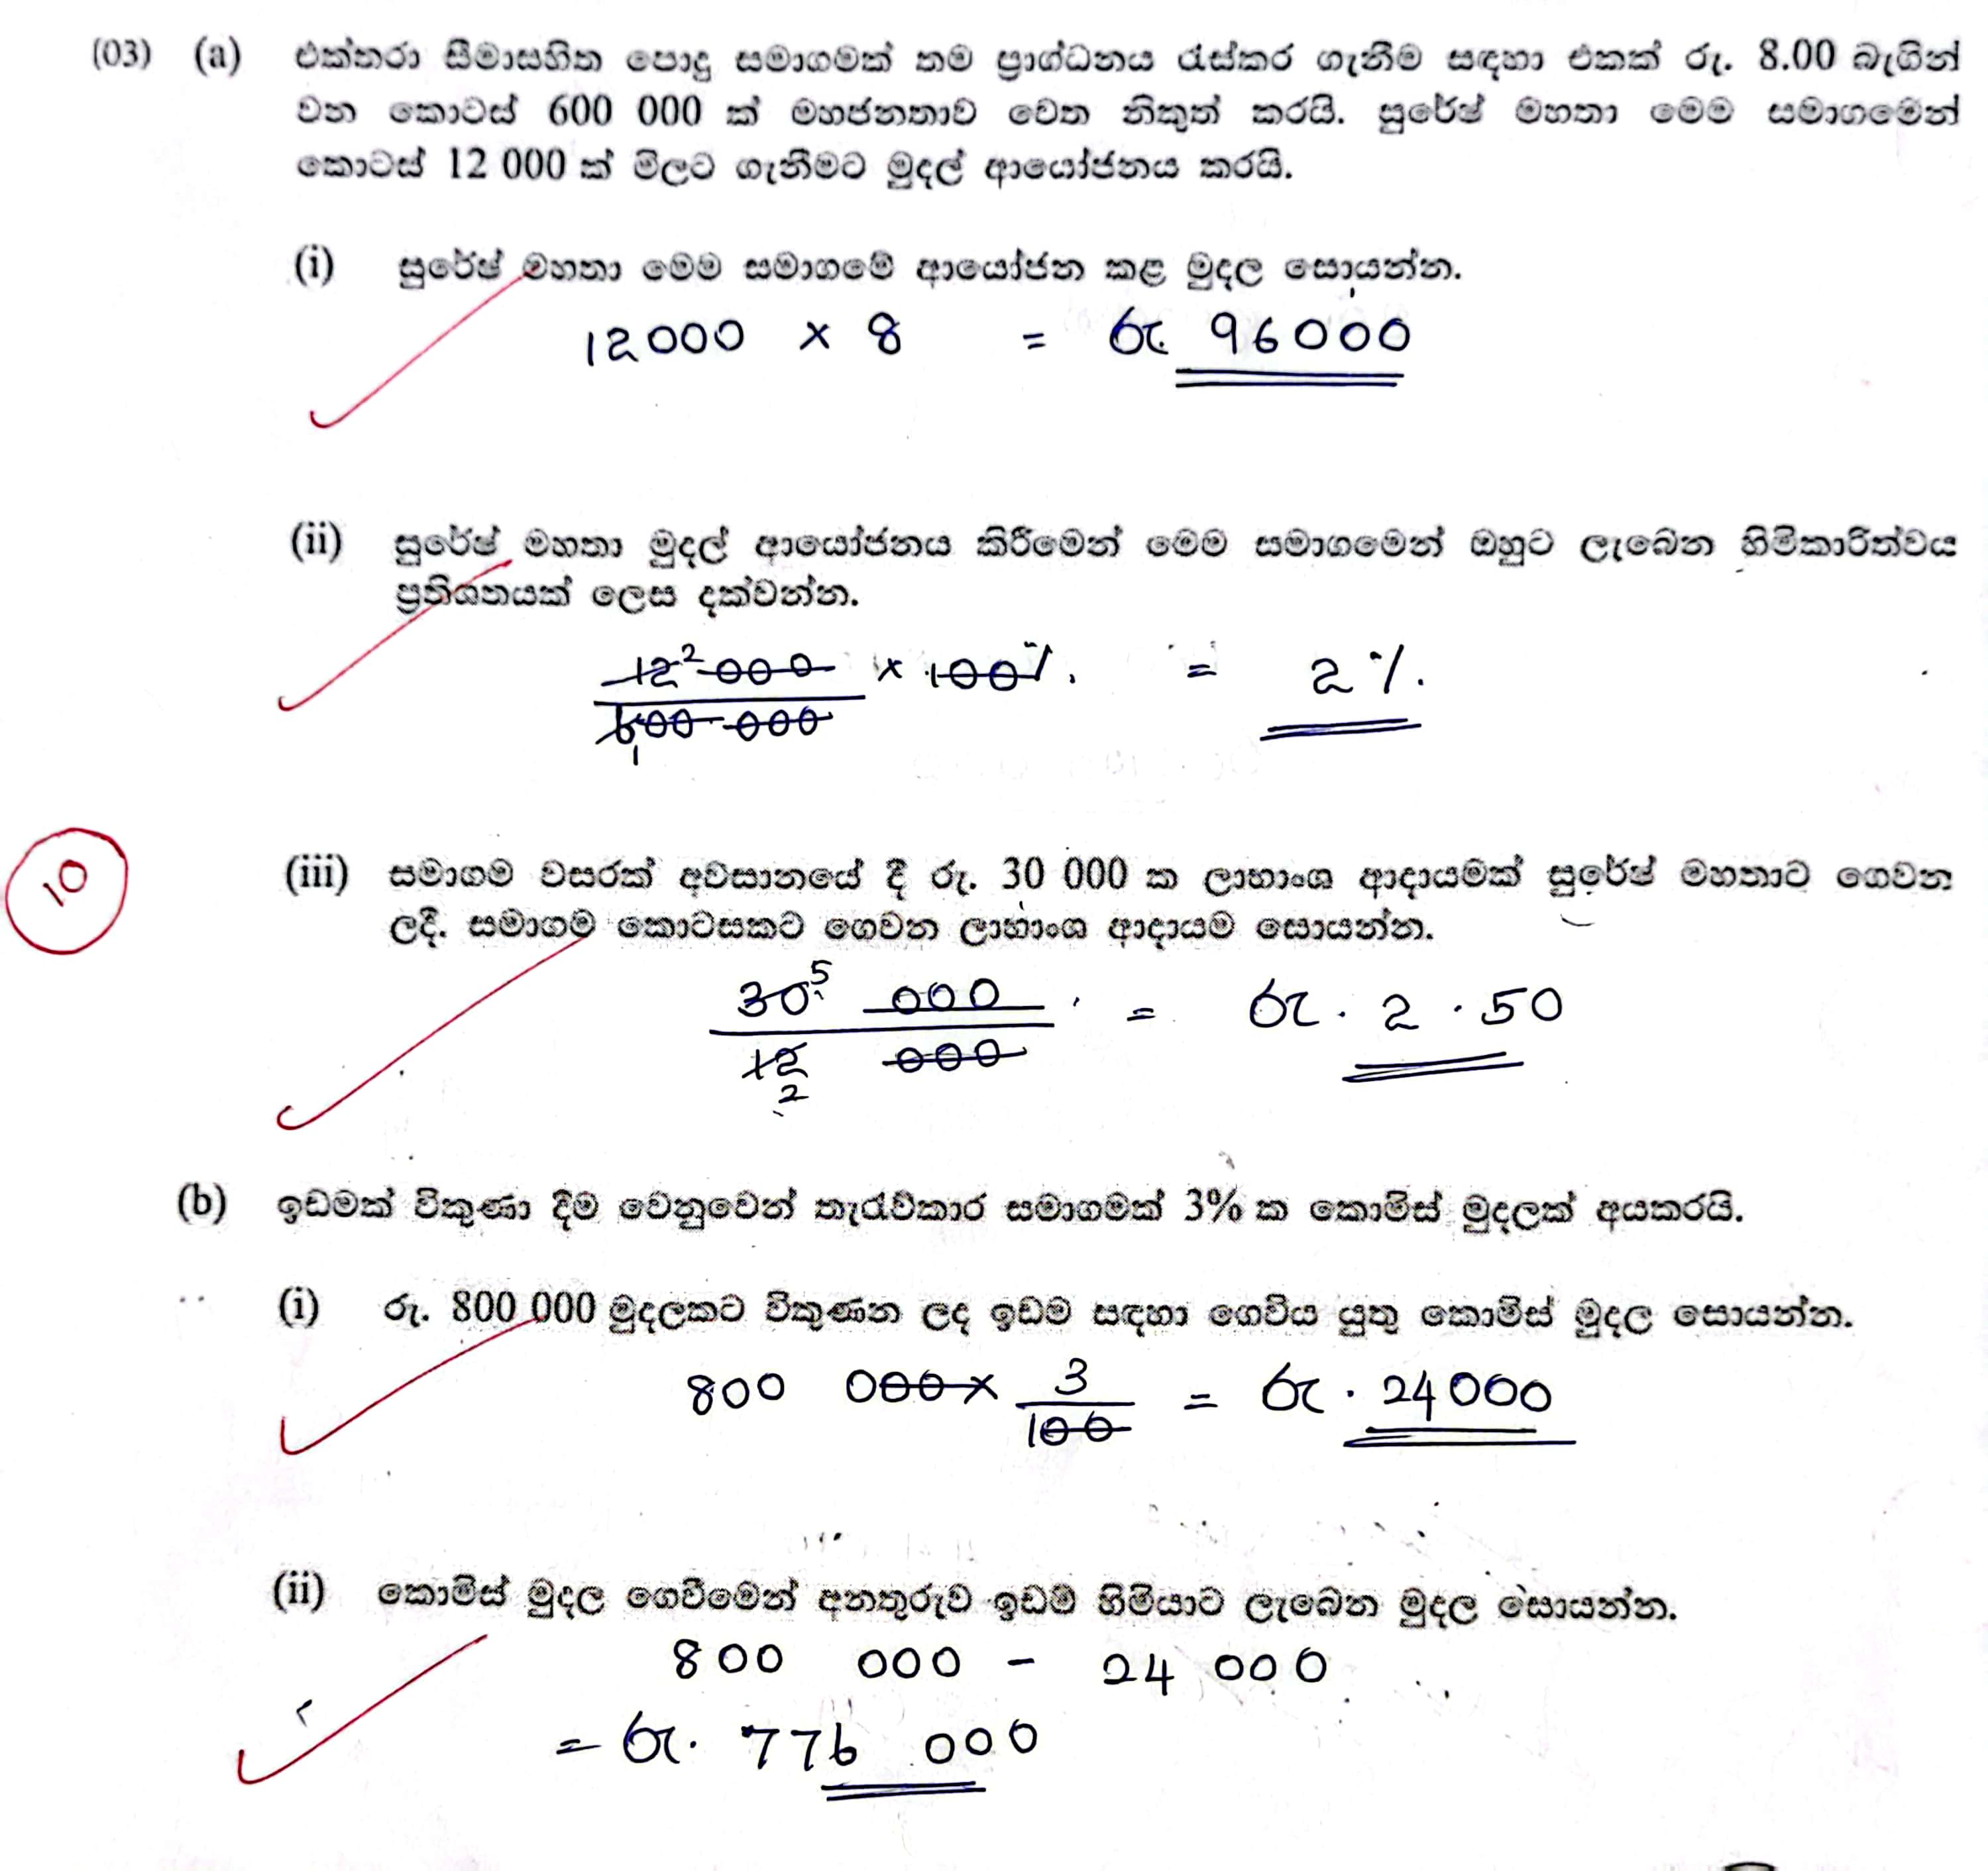 (03) (a) එක්තරා සීමාසහිත පොදු සමාගමක් තම ප්‍රාග්ධනය රැස්කර ගැනීම සඳහා එකක් රු. 8.00 බැගින්
වන කොටස් 600 000 ක් මහජනතාව වෙත නිකුත් කරයි. සුරේෂ් මහතා මෙම සමාගමෙන්
කොටස් 12 000 ක් මිලට ගැනීමට මුදල් ආයෝජනය කරයි.
(i) සුරේෂ් මහතා මෙම සමාගමේ ආයෝජන කළ මුදල සොයන්න.
12000 × 8 = රු. 96000
(ii) සුරේෂ් මහතා මුදල් ආයෝජනය කිරීමෙන් මෙම සමාගමෙන් ඔහුට ලැබෙන හිමිකාරිත්වය
ප්‍රතිශතයක් ලෙස දක්වන්න.
12 2 000 × 100% = 2%
600 000
1
10
(iii) සමාගම වසරක් අවසානයේ දී රු. 30 000 ක ලාභාංශ ආදායමක් සුරේෂ් මහතාට ගෙවන
ලදී. සමාගම කොටසකට ගෙවන ලාභාංශ ආදායම සොයන්න.
30 5 000 = රු. 2.50
12 000
2
(b) ඉඩමක් විකුණා දීම වෙනුවෙන් තැරැව්කාර සමාගමක් 3% ක කොමිස් මුදලක් අයකරයි.
(i) රු. 800 000 මුදලකට විකුණන ලද ඉඩම සඳහා ගෙවිය යුතු කොමිස් මුදල සොයන්න.
800 000 × 3/100 = රු. 24000
(ii) කොමිස් මුදල ගෙවීමෙන් අනතුරුව ඉඩම් හිමියාට ලැබෙන මුදල සොයන්න.
800 000 - 24 000
= රු. 776 000